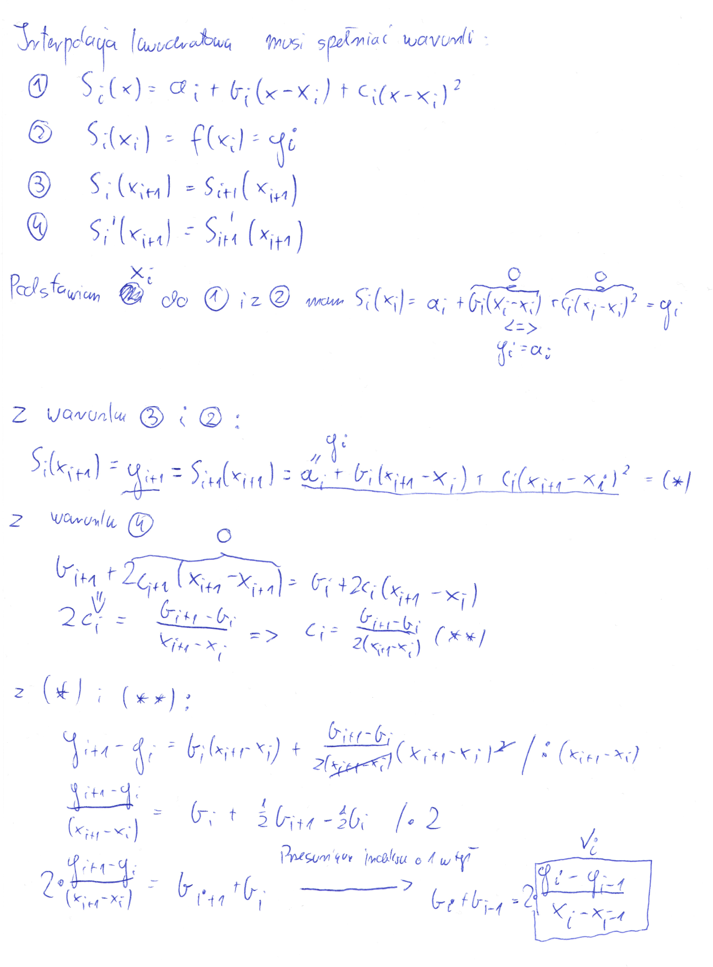 Interpolacja kwadratowa musi spełniać warunki:
① S_i(x) = a_i + b_i(x-x_i) + c_i(x-x_i)²
② S_i(x_i) = f(x_i) = y_i
③ S_i(x_{i+1}) = S_{i+1}(x_{i+1})
④ S_i'(x_{i+1}) = S_{i+1}'(x_{i+1})
x_i 0 0
Podstawiam do ① i z ② mam S_i(x_i) = a_i + b_i(x_i-x_i) + c_i(x_i-x_i)² = y_i
<=>
y_i = a_i
Z warunku ③ i ②:
y_i
"
S_i(x_{i+1}) = y_{i+1} = S_{i+1}(x_{i+1}) = a_i + b_i(x_{i+1}-x_i) + c_i(x_{i+1}-x_i)² = (*)
z warunku ④
0
b_{i+1} + 2c_{i+1}(x_{i+1}-x_{i+1}) = b_i + 2c_i(x_{i+1}-x_i)
⇓
2c_i = \frac{b_{i+1}-b_i}{x_{i+1}-x_i} => c_i = \frac{b_{i+1}-b_i}{2(x_{i+1}-x_i)} (**)
z (*) i (**):
y_{i+1}-y_i = b_i(x_{i+1}-x_i) + \frac{b_{i+1}-b_i}{2(x_{i+1}-x_i)}(x_{i+1}-x_i)² /:(x_{i+1}-x_i)
\frac{y_{i+1}-y_i}{(x_{i+1}-x_i)} = b_i + ½b_{i+1} - ½b_i /·2
Przesunięcie indeksu o 1 w tył
V_i
2·\frac{y_{i+1}-y_i}{(x_{i+1}-x_i)} = b_{i+1}+b_i ⟶ b_i+b_{i-1} = 2·\frac{y_i-y_{i-1}}{x_i-x_{i-1}}